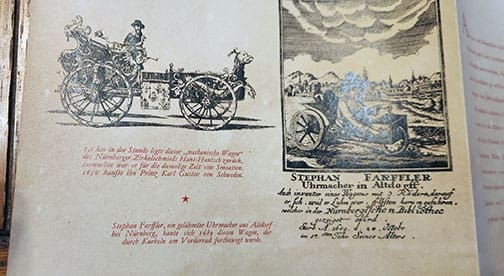 1,6 km in der Stunde legte dieser „mechanische Wagen"
des Nürnberger Zirkelschmieds Hans Hautsch zurück.
Immerhin war er für die damalige Zeit eine Sensation.
1650 kaufte ihn Prinz Karl Gustav von Schweden.
Stephan Farffler, ein gelähmter Uhrmacher aus Altdorf
bei Nürnberg, baute sich 1685 diesen Wagen, der
durch Kurbeln am Vorderrad fortbewegt wurde.
STEPHAN FARFFLER
Uhrmacher in Altdorff.
Auch inventor eines Wagens mit 3. Rädern, darauf
er sich, weil er Lahm war, selbsten hern in gefahren,
welcher in der Nürnbergischen Bibliothec
gezeigt wird
October
in 57. Jahr Seines Alters